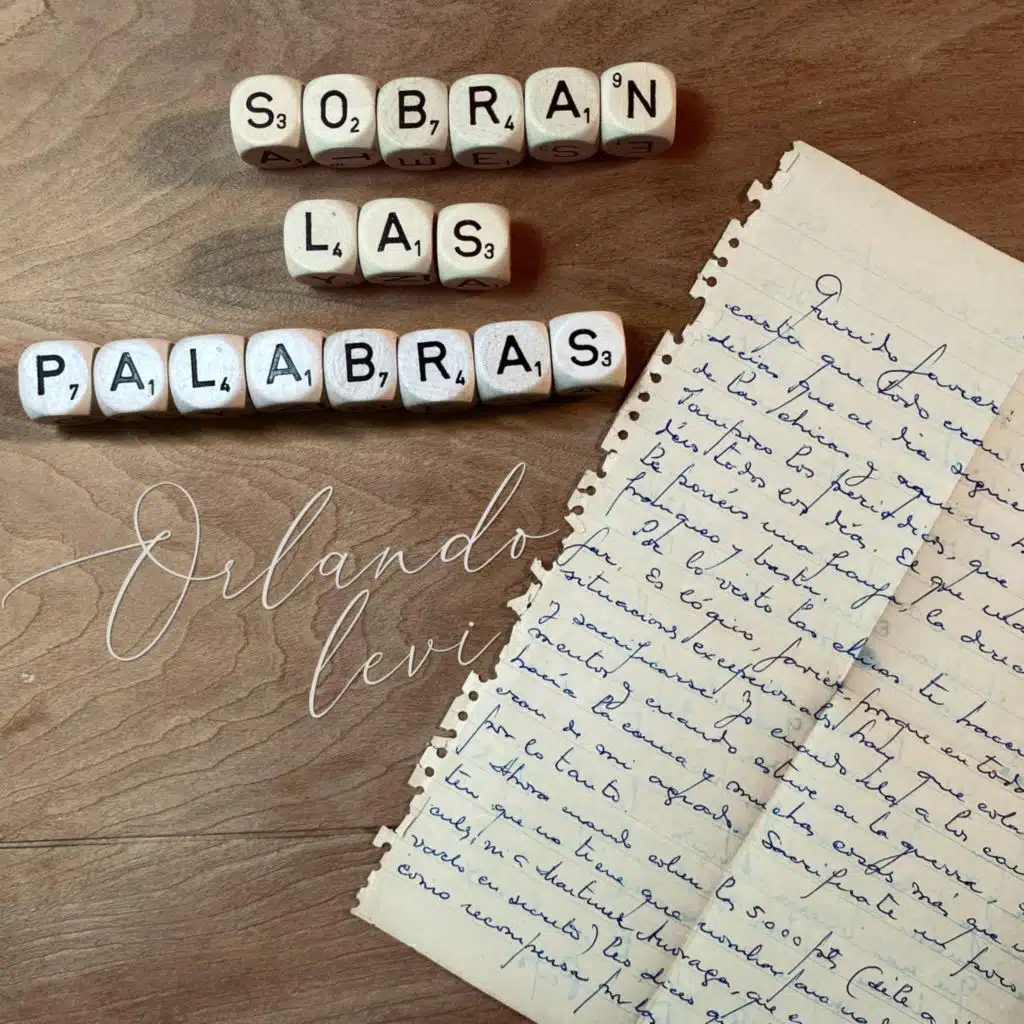 SOBRAN
LAS
PALABRAS
Orlando
levi
Querido Javier:
carta que todo eran
decías que al día siguie
de las chicas y aquí no h
Tampoco los periódicos, que
déis todos los días. El que
le ponéis una faja, la direc
franqueo y basta.
Por lo visto las chicas te hacen
Es lógico, Javier, porque en todas
situaciones excepcionales hay que cola
y sacrificarse. Yo cuando
mentos y cuando estuve en la guerra,
hacía la cama y muchas cosas más que
eran de mi agrado. Sacrifícate un poco
por lo tanto
Ahora cuando cobren las 5.000 pts (dile a
ten que no tiene que nombrar para
ni a Martínez que
en secreto) les dices
como recompensa por los